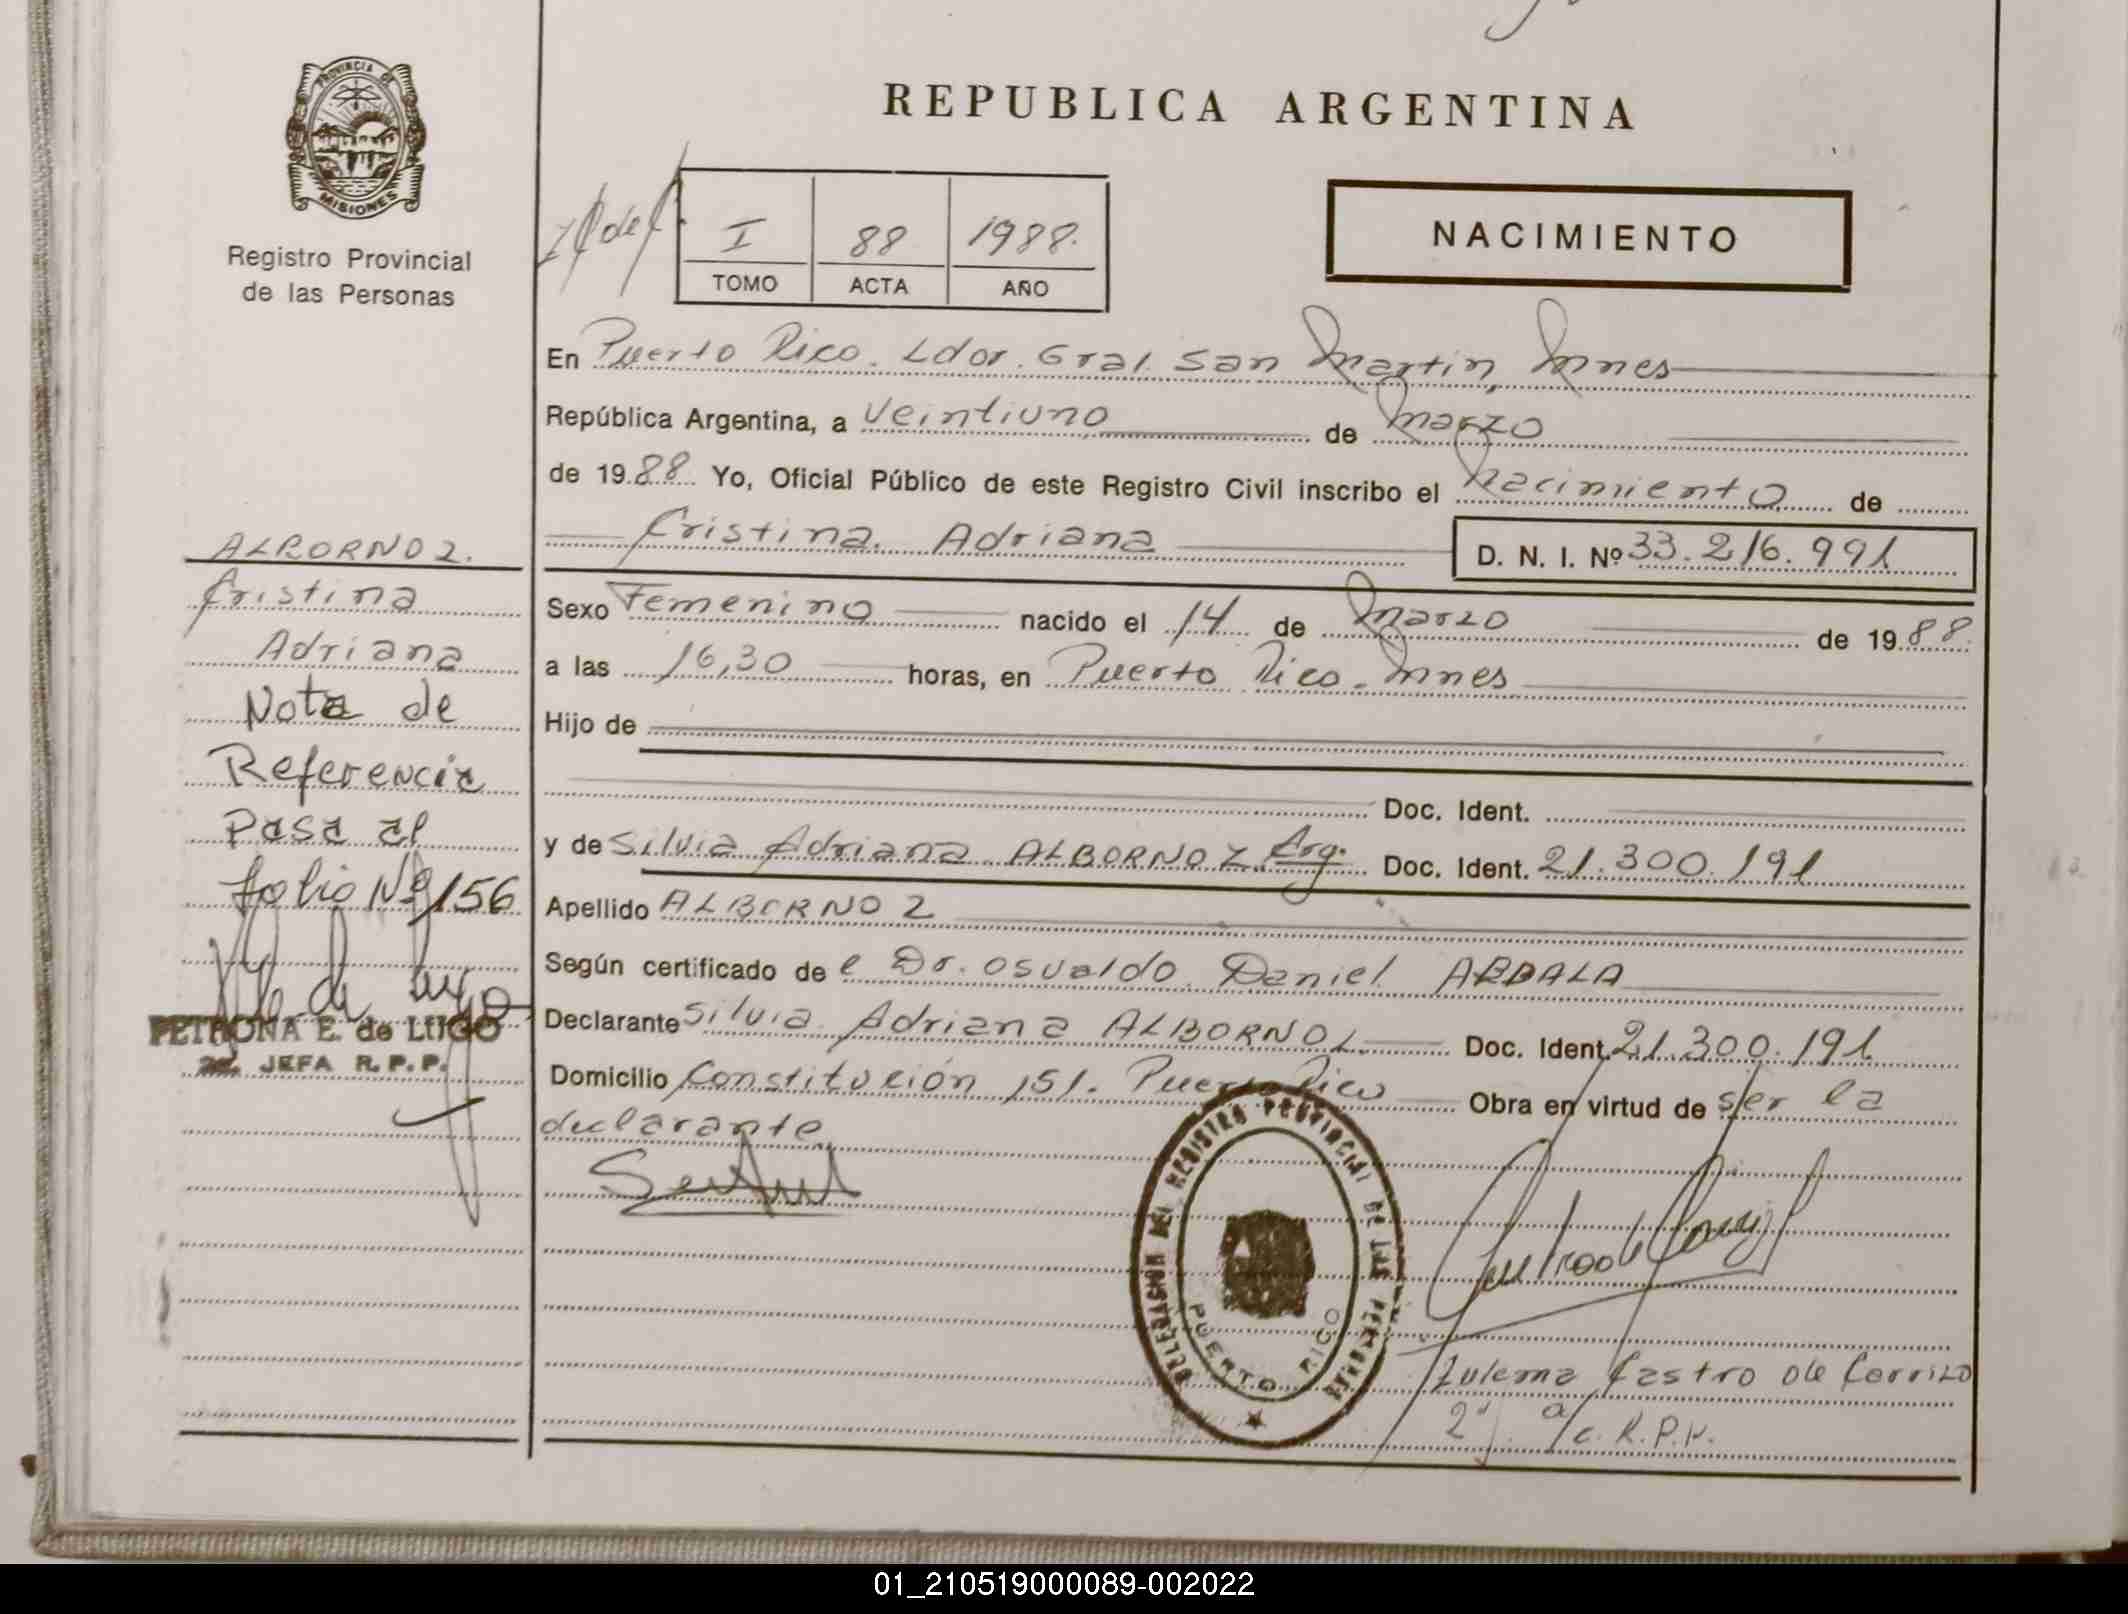 REPUBLICA ARGENTINA
PROVINCIA DE
MISIONES
Registro Provincial
de las Personas
I 88 1988.
TOMO ACTA AÑO
NACIMIENTO
En Puerto Rico. Ldor. Gral. San Martin, Mnes
República Argentina, a veintiuno de Marzo
de 1988 Yo, Oficial Público de este Registro Civil inscribo el Nacimiento de
Cristina Adriana D. N. I. Nº 33.216.991
Sexo Femenino nacido el 14 de Marzo de 1988.
a las 16,30 horas, en Puerto Rico. Mnes
Hijo de
Doc. Ident.
y de Silvia Adriana ALBORNOZ Arg. Doc. Ident. 21.300.191
Apellido ALBORNOZ
Según certificado de e Dr. Osvaldo Daniel ABDALA
Declarante Silvia Adriana ALBORNOZ Doc. Ident. 21.300.191
Domicilio Constitución 151. Puerto Rico Obra en virtud de ser la
declarante
ALBORNOZ.
Cristina
Adriana
Nota de
Referencia
Pasa al
folio Nº 156
PETRONA E. de LUGO
JEFA R.P.P.
DELEGACION DEL REGISTRO PROVINCIAL DE LAS PERSONAS
PUERTO RICO
Zulema Castro de Carrizo
01_210519000089-002022